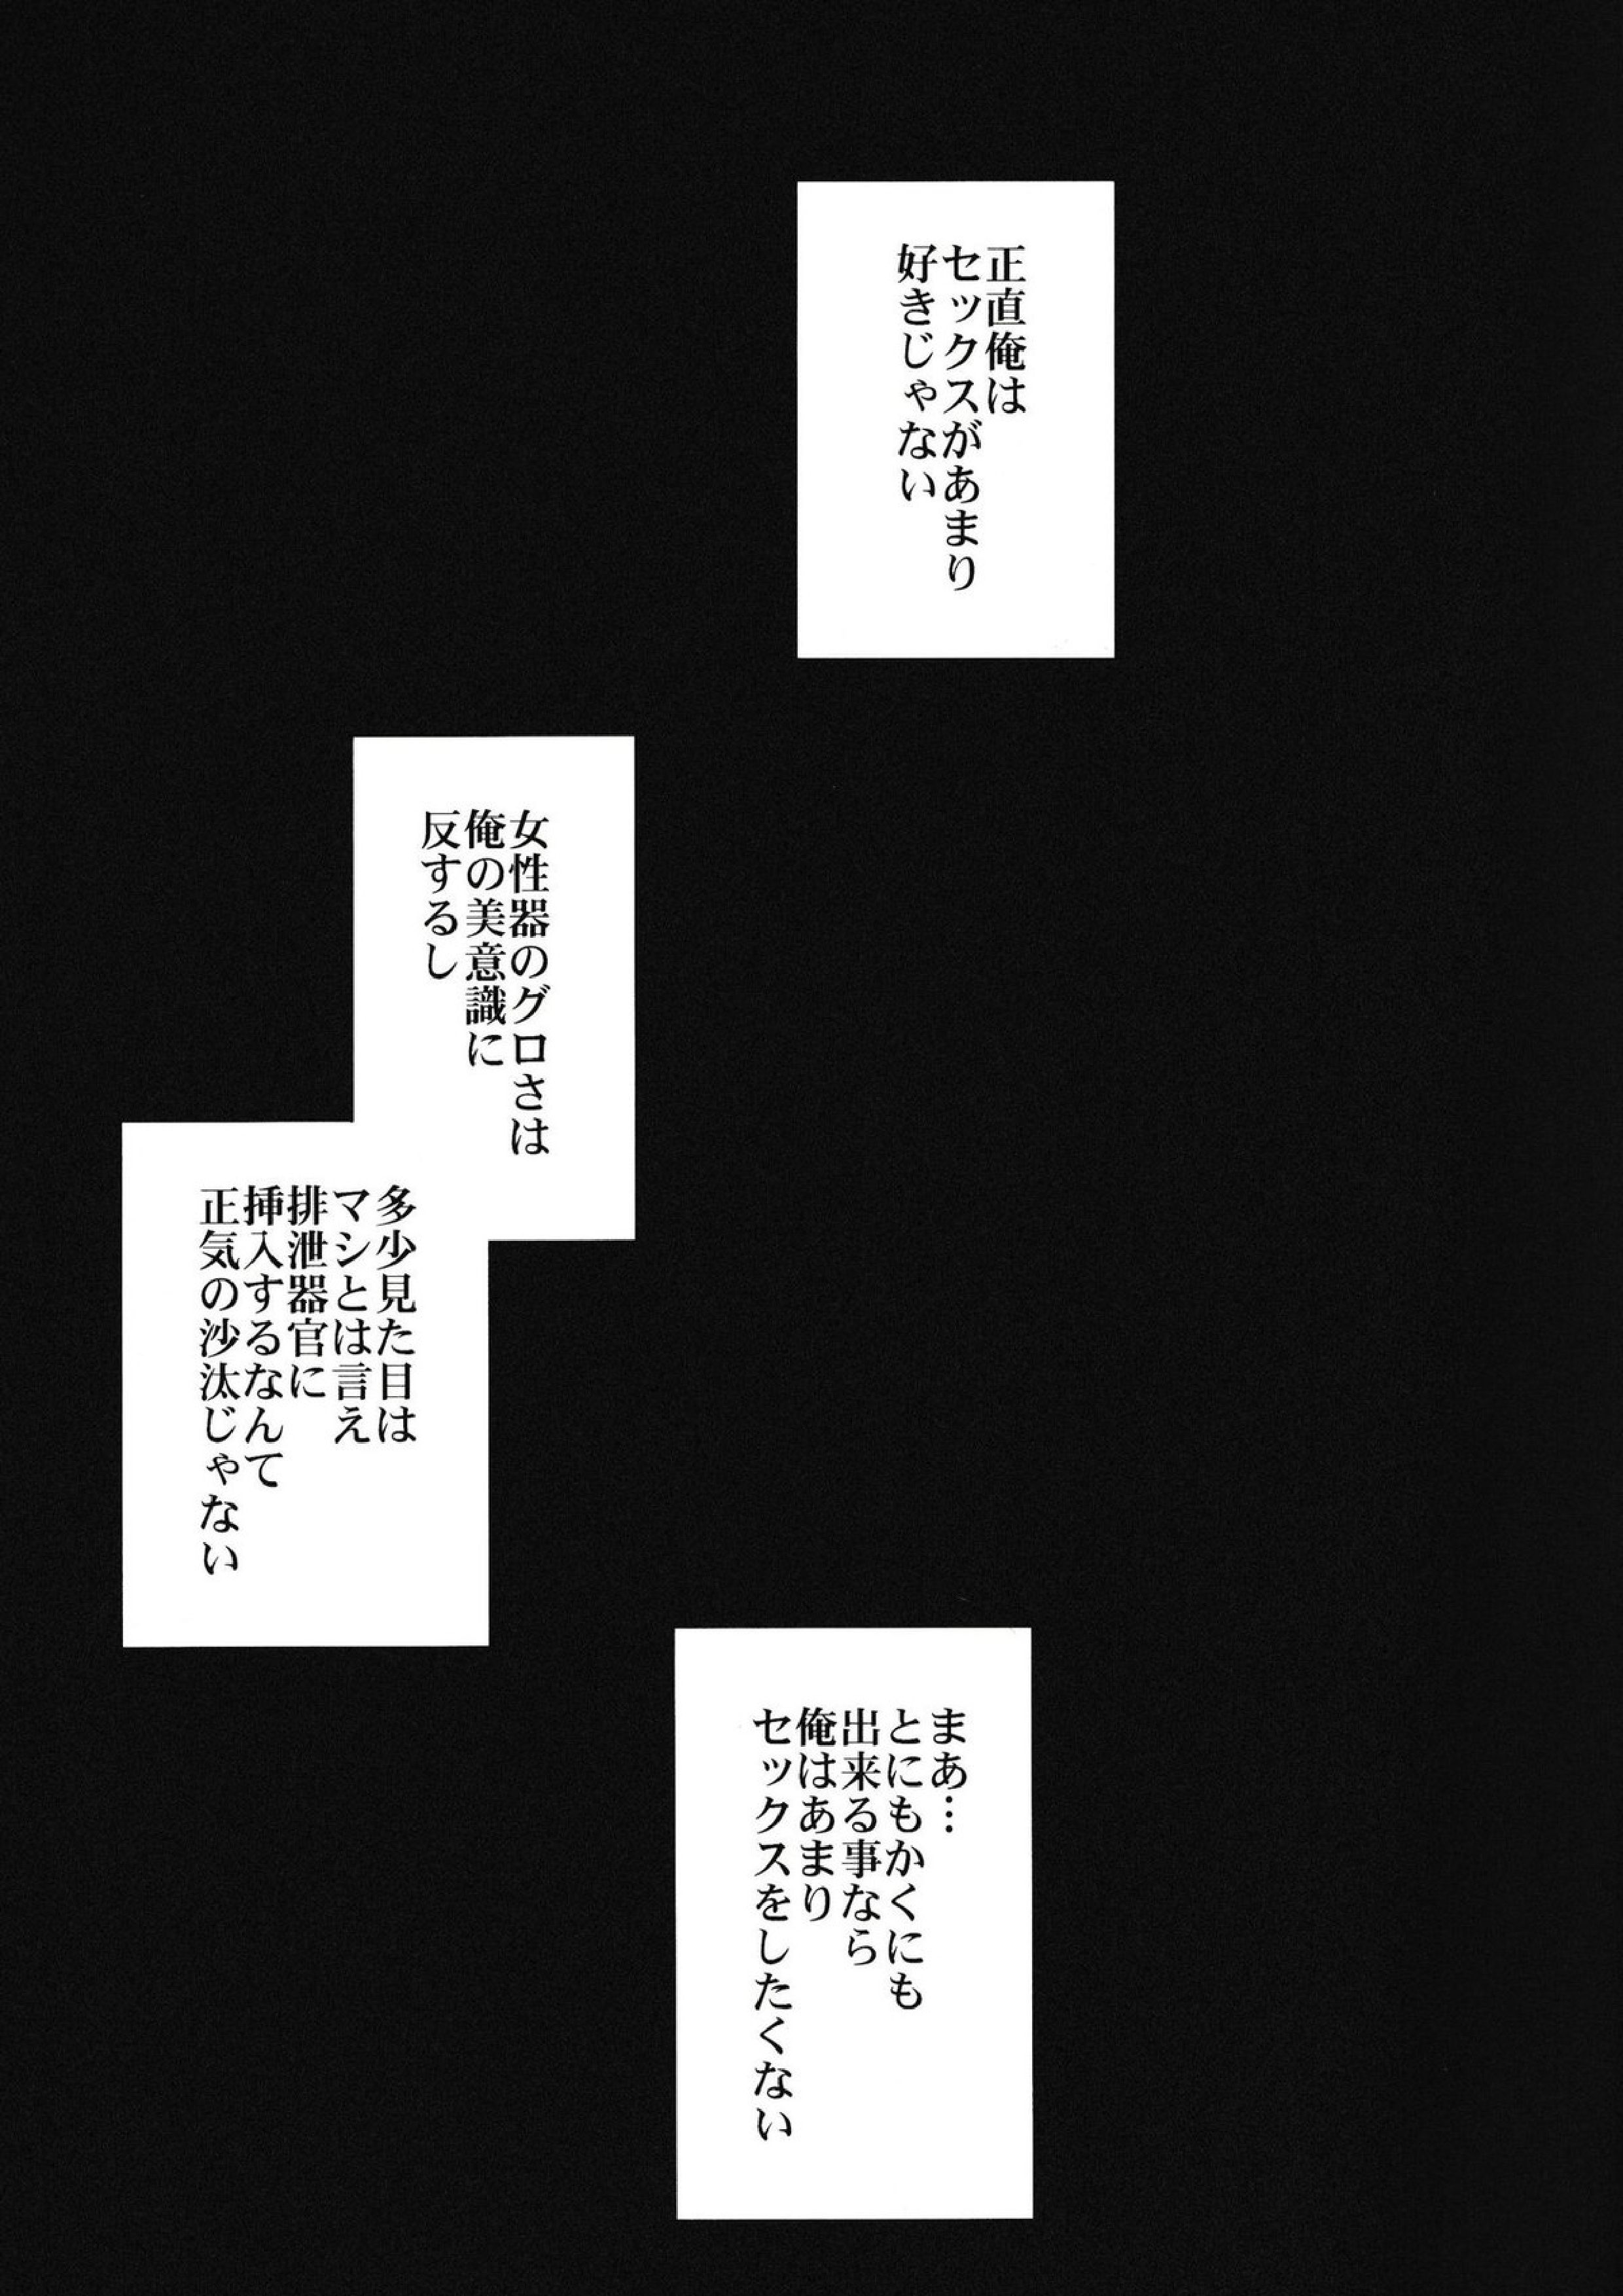 正直俺は
セックスがあまり
好きじゃない
女性器のグロさは
俺の美意識に
反するし
多少見た目は
マシとは言え
排泄器官に
挿入するなんて
正気の沙汰じゃない
まあ…
とにもかくにも
出来る事なら
俺はあまり
セックスをしたくない